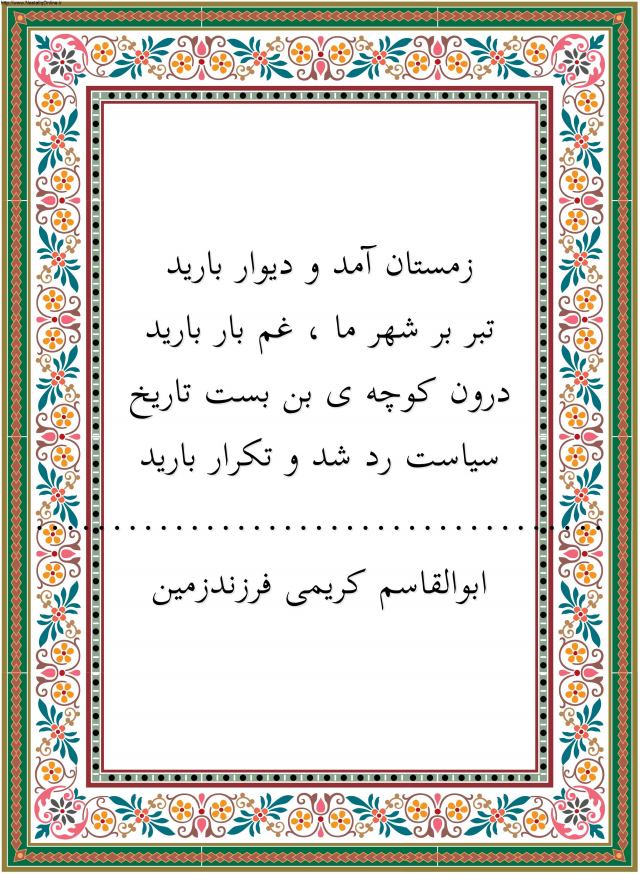 http://www.NastaliqOnline.ir
زمستان آمد و دیوار بارید
تبر بر شهر ما ، غم بار بارید
درون کوچه ی بن بست تاریخ
سیاست رد شد و تکرار بارید
....................................
ابوالقاسم کریمی فرزندزمین